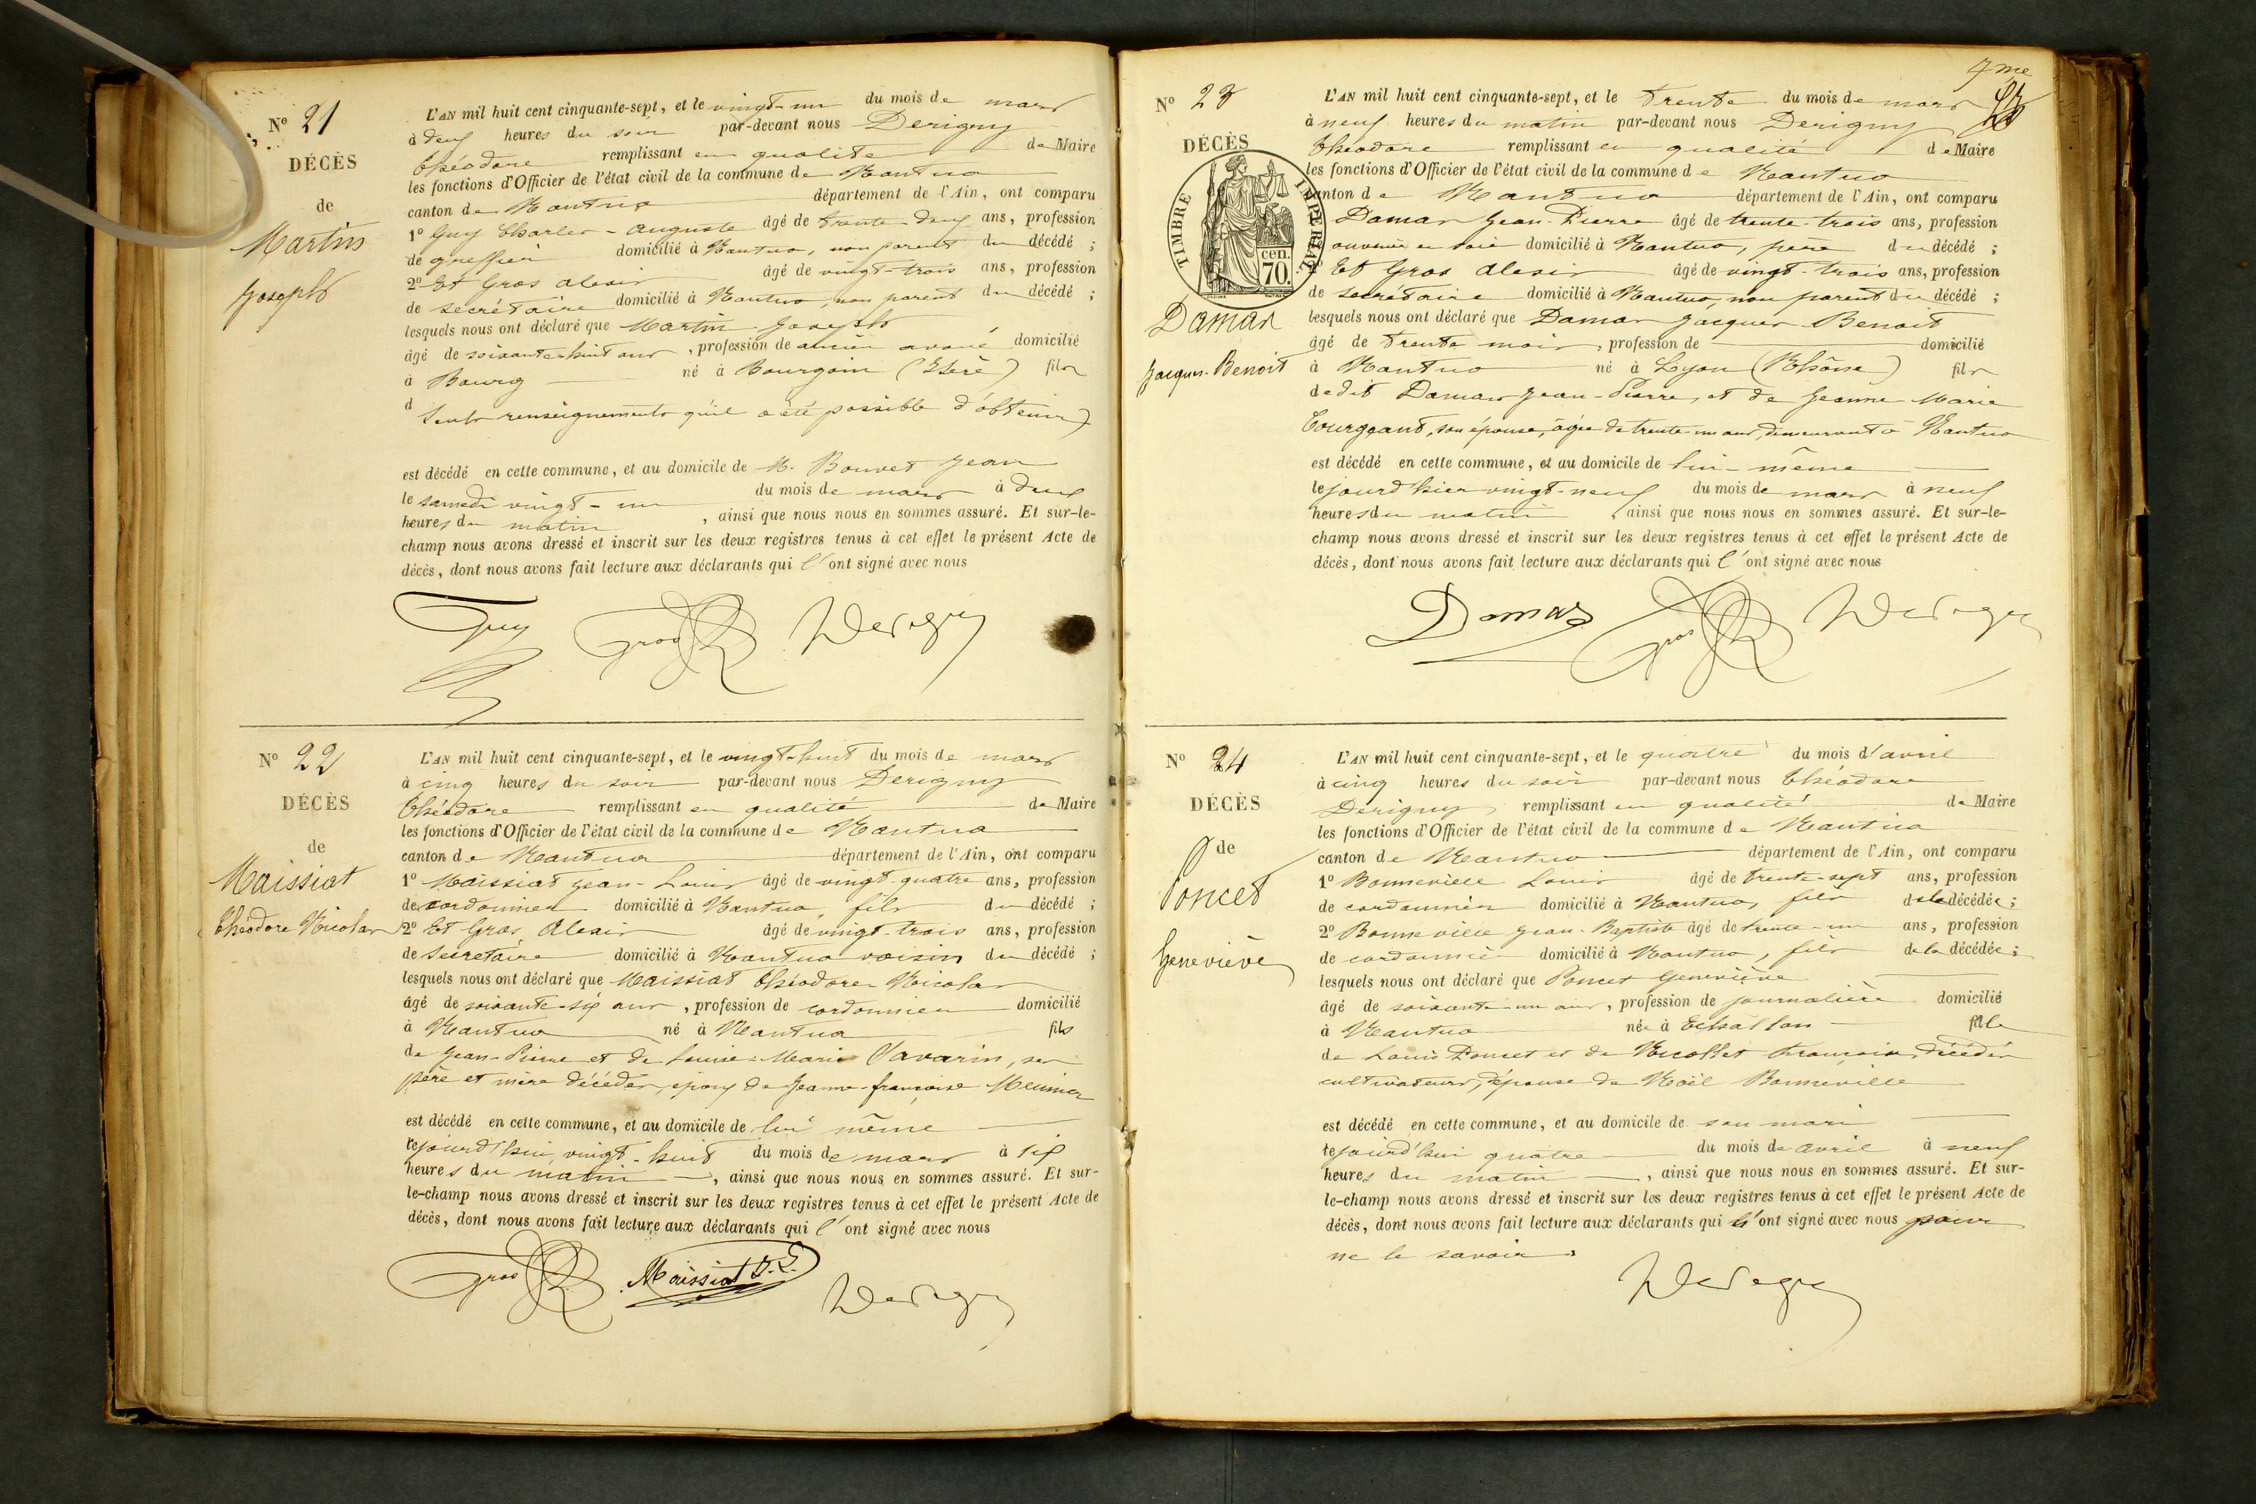 N° 21
DÉCÈS
de
Martin
Joseph
L'AN mil huit cent cinquante-sept, et le vingt-un du mois de mars
à deux heures du soir par-devant nous Derigny
Théodore remplissant en qualité de Maire
les fonctions d'Officier de l'état civil de la commune de Nantua
canton de Nantua département de l'Ain, ont comparu
1° Guy Charles-Auguste âgé de trente-deux ans, profession
de greffier domicilié à Nantua, non parent du décédé ;
2° Et Gros Alexis âgé de vingt-trois ans, profession
de secrétaire domicilié à Nantua, non parent du décédé ;
lesquels nous ont déclaré que Martin Joseph
âgé de soixante-huit ans, profession de ancien avoué domicilié
à Bourg né à Bourgoin (Isère) fils
d
Seuls renseignements qu'il a été possible d'obtenir)
est décédé en cette commune, et au domicile de M. Bouvet Jean
le samedi vingt-un du mois de mars à deux
heures du matin, ainsi que nous nous en sommes assuré. Et sur-le-
champ nous avons dressé et inscrit sur les deux registres tenus à cet effet le présent Acte de
décès, dont nous avons fait lecture aux déclarants qui l'ont signé avec nous
Guy Gros Derigny
N° 22
DÉCÈS
de
Maissiat
Théodore Nicolas
L'AN mil huit cent cinquante-sept, et le vingt-huit du mois de mars
à cinq heures du soir par-devant nous Derigny
Théodore remplissant en qualité de Maire
les fonctions d'Officier de l'état civil de la commune de Nantua
canton de Nantua département de l'Ain, ont comparu
1° Maissiat Jean-Louis âgé de vingt-quatre ans, profession
de cordonnier domicilié à Nantua, fils du décédé ;
2° Et Gros Alexis âgé de vingt-trois ans, profession
de Secrétaire domicilié à Nantua voisin du décédé ;
lesquels nous ont déclaré que Maissiat Théodore Nicolas
âgé de soixante-six ans, profession de cordonnier domicilié
à Nantua né à Nantua fils
de Jean-Pierre et de Louise-Marie Savarin, ses
père et mère décédés, époux de Jeanne-françoise Meunier
est décédé en cette commune, et au domicile de lui même
lejourd'hui vingt-huit du mois de mars à six
heures du matin, ainsi que nous nous en sommes assuré. Et sur-
le-champ nous avons dressé et inscrit sur les deux registres tenus à cet effet le présent Acte de
décès, dont nous avons fait lecture aux déclarants qui l'ont signé avec nous
Gros Maissiat J.L. Derigny
7me
N° 23
DÉCÈS
TIMBRE IMPÉRIAL
cen.
70.
Damas
Jacques-Benoit
L'AN mil huit cent cinquante-sept, et le trente du mois de mars
à neuf heures du matin par-devant nous Derigny
Théodore remplissant en qualité de Maire
les fonctions d'Officier de l'état civil de la commune de Nantua
canton de Nantua département de l'Ain, ont comparu
Damas Jean-Pierre âgé de trente-trois ans, profession
ouvrier en soie domicilié à Nantua, père du décédé ;
Et Gros Alexis âgé de vingt-trois ans, profession
de secrétaire domicilié à Nantua, non parent du décédé ;
lesquels nous ont déclaré que Damas Jacques Benoit
âgé de trente mois, profession de domicilié
à Nantua né à Lyon (Rhône) fils
dedit Damas Jean-Pierre, et de Jeanne Marie
son épouse, âgée de trente-un ans, demeurant à Nantua
est décédé en cette commune, et au domicile de lui-même
lejourd'hier vingt-neuf du mois de mars à neuf
heures du matin, ainsi que nous nous en sommes assuré. Et sur-le-
champ nous avons dressé et inscrit sur les deux registres tenus à cet effet le présent Acte de
décès, dont nous avons fait lecture aux déclarants qui l'ont signé avec nous
Damas Gros Derigny
N° 24
DÉCÈS
de
Poncet
Geneviève
L'AN mil huit cent cinquante-sept, et le quatre du mois d'avril
à cinq heures du soir par-devant nous Théodore
Derigny, remplissant en qualité de Maire
les fonctions d'Officier de l'état civil de la commune de Nantua
canton de Nantua département de l'Ain, ont comparu
1° Bonneville Louis âgé de trente-sept ans, profession
de cordonnier domicilié à Nantua, fils de la décédée ;
2° Bonneville Jean-Baptiste âgé de trente-un ans, profession
de cordonnier domicilié à Nantua, fils de la décédée ;
lesquels nous ont déclaré que Poncet Geneviève
âgé de soixante-un ans, profession de journalière domicilié
à Nantua née à Echallon fille
de Louis Poncet et de Nicollet françoise, décédés
cultivateurs, épouse de Noël Bonneville
est décédé en cette commune, et au domicile de son mari
lejourd'hui quatre du mois de avril à neuf
heures du matin, ainsi que nous nous en sommes assuré. Et sur-
le-champ nous avons dressé et inscrit sur les deux registres tenus à cet effet le présent Acte de
décès, dont nous avons fait lecture aux déclarants qui n'ont signé avec nous pour
ne le savoir.
Derigny